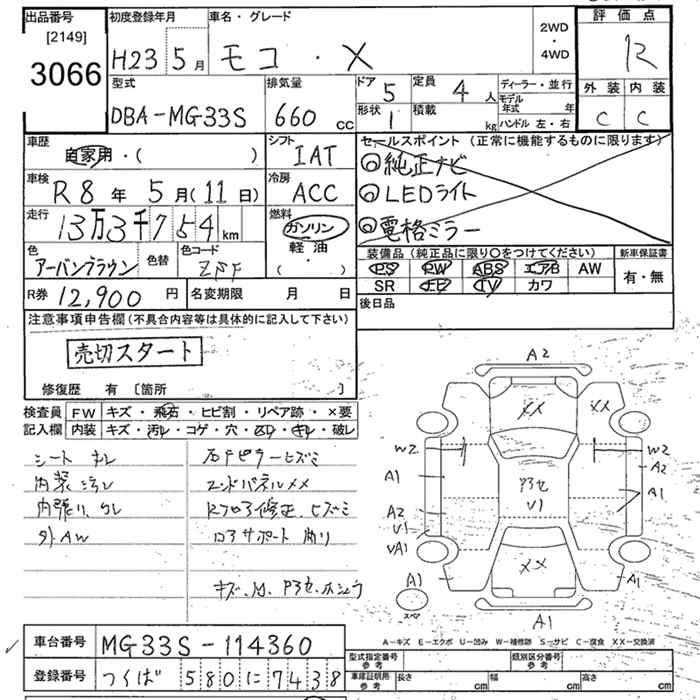 出品番号 初度登録年月 車名・グレード 評価点
[2149]
3066 H23 5月 モコ・X 2WD・4WD R
型式 排気量 ドア 5 定員 4人 ディーラー・並行 外装 内装
DBA-MG33S 660 CC 形状 1 積載 kg モデル年式 年 ハンドル 左・右 C C
車歴 自家用・( ) シフト IAT セールスポイント (正常に機能するものに限ります)
◎純正ナビ
車検 R8年 5月(11日) 冷房 ACC ◎LEDライト
走行 13万3千754km 燃料 ガソリン ◎電格ミラー
軽油
( ・ )
色 アーバンブラウン 色替 色コード 装備品 (純正品に限り○をつけてください) 新車保証書
PS PW ABS エアB AW 有・無
SR TV カワ
R券 12,900円 名変期限 月 日 後日品
注意事項申告欄(不具合内容等は具体的に記入して下さい)
売切スタート
修復歴 有 [箇所 ]
検査員 FW キズ・飛石・ヒビ割・リペア跡・×要
記入欄 内装 キズ・汚れ・コゲ・穴・・・破レ
シート キレ 右Aピラーヒズミ
内装 汚レ エンドパネルメメ
内張リ
外AW ロアサポート 削リ
A2
XX XX
W2 W2
A1 A2
P3セ A1
A2 U1
U1
UA1
XX
A1 A1
スペア
A1
A-キズ E-エクボ U-凹み W-補修跡 S-サビ C-腐食 XX-交換済
車台番号 MG33S-114360
型式指定番号 参考 類別区分番号 参考
登録番号 つくば 580 に 7438
車庫証明用 参考 長さ cm 幅 cm 高さ cm